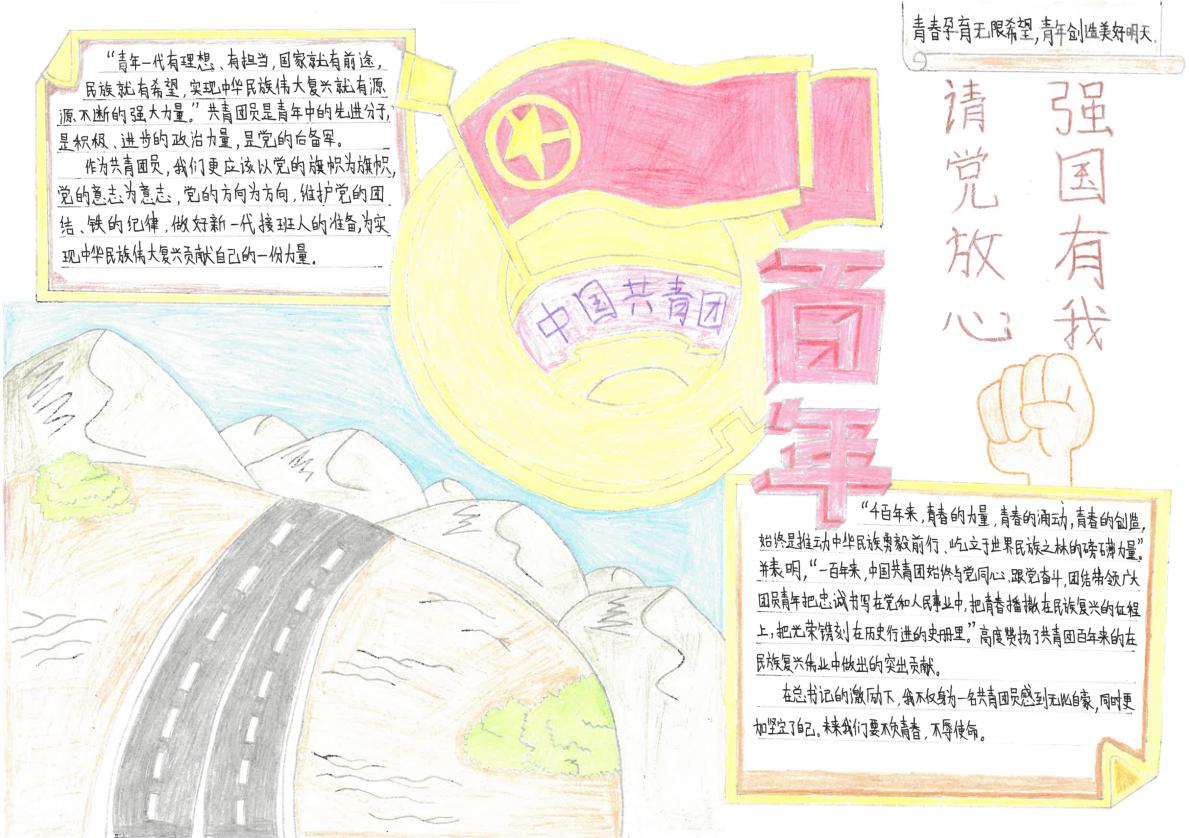 青春孕育无限希望,青年创造美好明天.
“青年一代有理想、有担当,国家就有前途,
民族就有希望,实现中华民族伟大复兴就有源
源不断的强大力量。”共青团员是青年中的先进分子,
是积极、进步的政治力量,是党的后备军。
作为共青团员,我们更应该以党的旗帜为旗帜,
党的意志为意志,党的方向为方向,维护党的团
结、铁的纪律,做好新一代接班人的准备,为实
现中华民族伟大复兴贡献自己的一份力量。
中国共青团
百年
强国有我
请党放心
“千百年来,青春的力量,青春的涌动,青春的创造,
始终是推动中华民族勇毅前行、屹立于世界民族之林的磅礴力量。”
并表明,“一百年来,中国共青团始终与党同心、跟党奋斗,团结带领广大
团员青年把忠诚书写在党和人民事业中,把青春播撒在民族复兴的征程
上,把光荣镌刻在历史行进的史册里。”高度赞扬了共青团百年来的在
民族复兴伟业中做出的突出贡献。
在总书记的激励下,我不仅身为一名共青团员感到无比自豪,同时更
加坚定了自己。未来我们要不负青春,不辱使命。